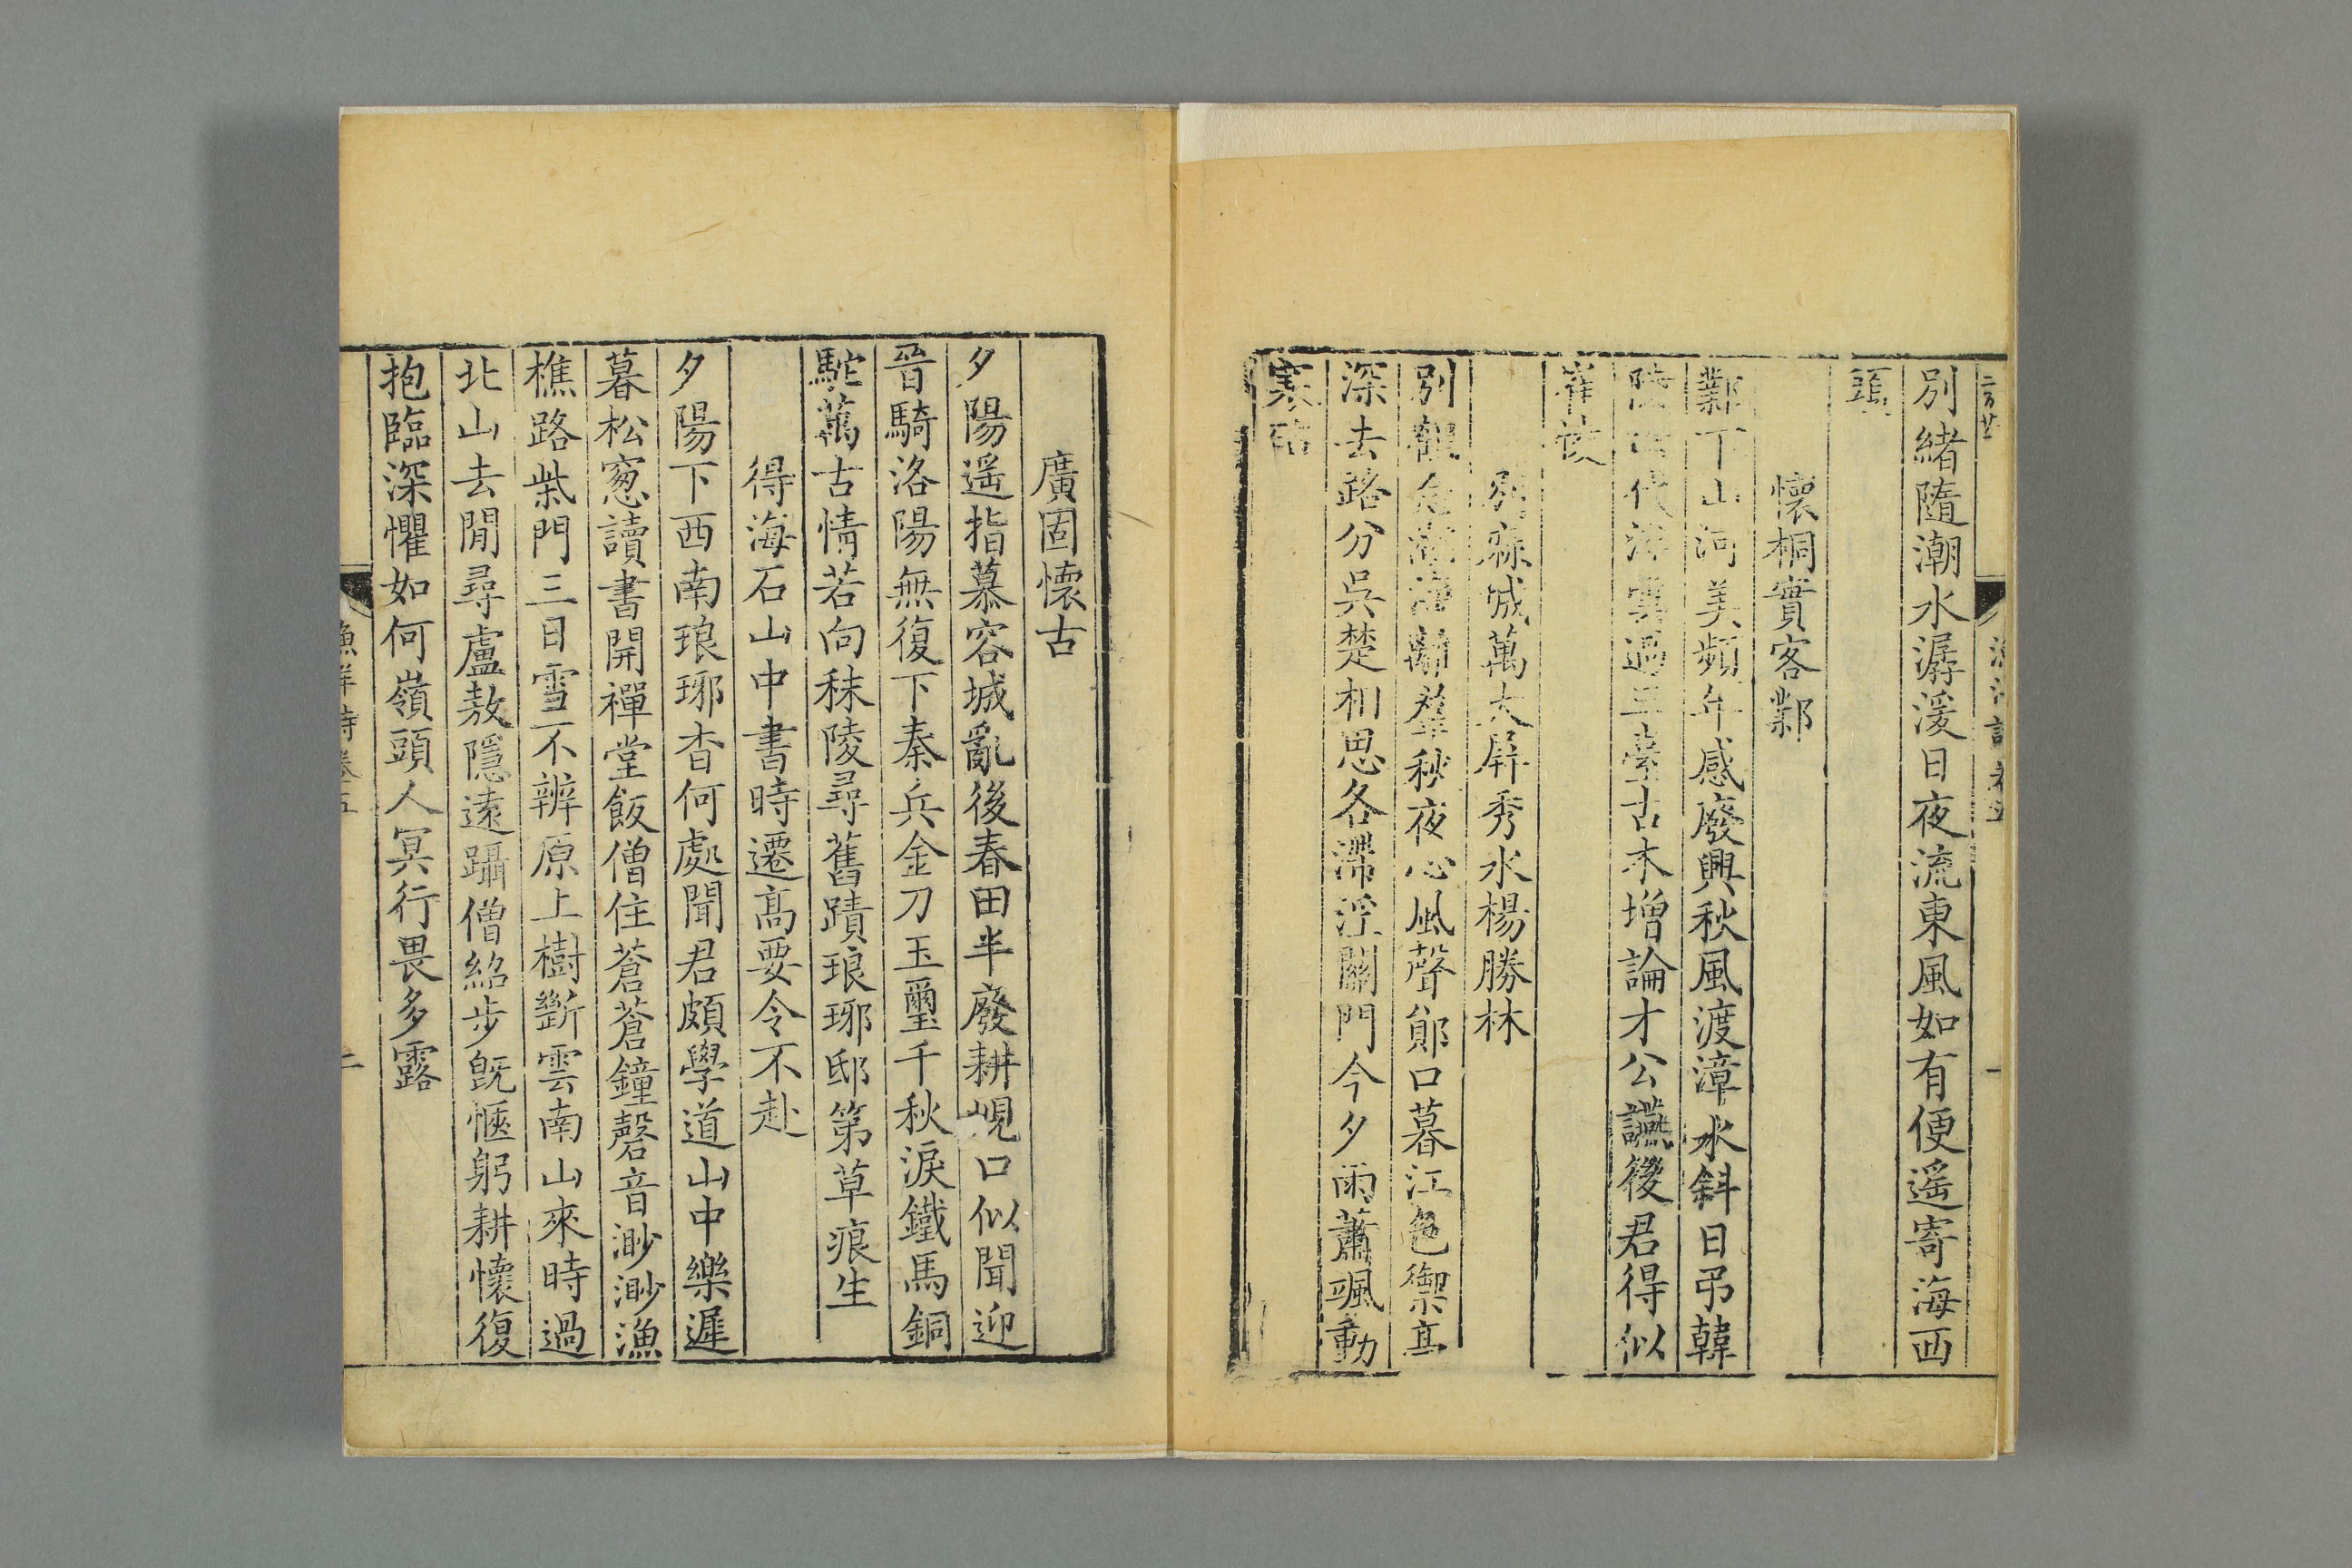 別緒隨潮水潺湲日夜流東風如有便遥寄海西
頭
懷桐實客鄴
鄴下山河美頻年感廢興秋風渡漳水斜日弔韓
陵 代 雲過三臺古木增論才公讌後君得似
崔
別 城萬大屏秀水楊勝林
別 秋夜心風聲鄖口暮江色禦亭
深去路分吳楚相思各滯淫關門今夕雨蕭颯動
寒砧
廣固懷古
夕陽遥指慕容城亂後春田半廢耕峴口似聞迎
晉騎洛陽無復下秦兵金刀玉璽千秋淚鐵馬銅
駝萬古情若向秣陵尋舊蹟琅琊邸第草痕生
得海石山中書時遷高要令不赴
夕陽下西南琅琊杳何處聞君頗學道山中樂遲
暮松窻讀書開禪堂飯僧住蒼蒼鐘磬音渺渺漁
樵路柴門三日雪不辨原上樹斷雲南山來時過
北山去閒尋盧敖隱遠躡僧紹步旣愜躬耕懷復
抱臨深懼如何嶺頭人冥行畏多露
漁洋詩卷五
二